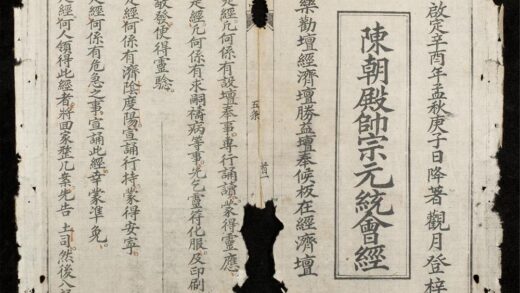 啟定辛酉年孟秋庚子日降著觀月登梓
陳朝殿帥宗元統會經
樂勸壇經濟壇勝益壇奉候板在經濟壇
五条
首一
是經凡何係有設壇奉事專行誦讀蒙得靈應
是經凡何係有求嗣禱病等事先乞靈符化服反印刷
敬發便得靈驗
是經何係有濟陰度陽宣誦行持蒙得安寧
是經何係有危急之事宣誦此經幸蒙準免
是經何人領得此經者將回家整几案先告土司然後入